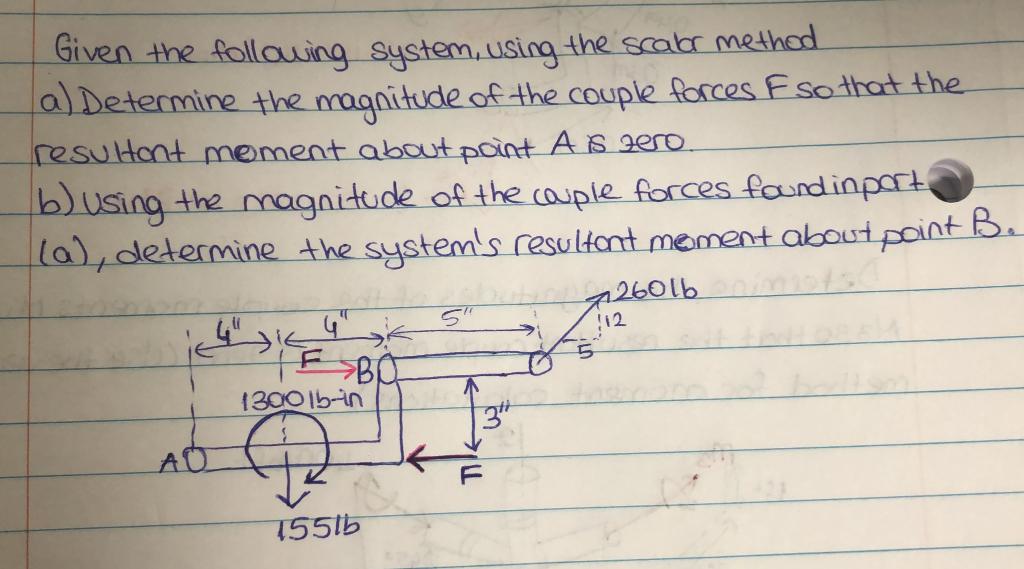 Given the following system, using the scalar method
a) Determine the magnitude of the couple forces F so that the
resultant moment about point A is zero.
b) Using the magnitude of the couple forces found in part
(a), determine the system's resultant moment about point B.
260lb
4" 4" 5" 12
5
F
B
1300lb-in
3"
A
F
155lb